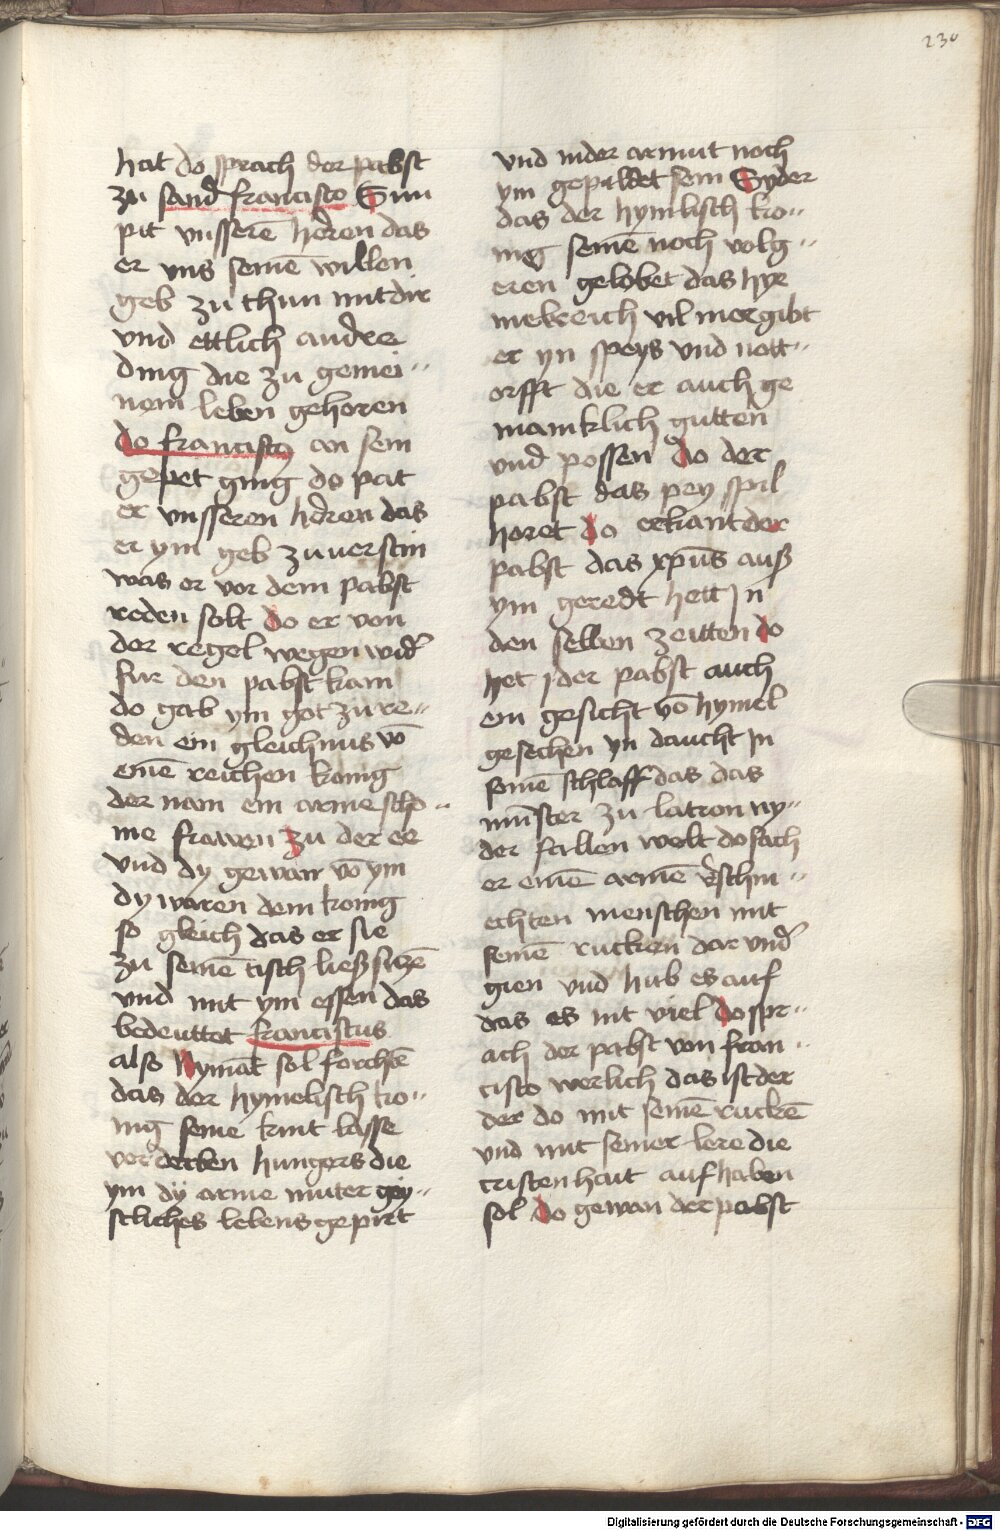 230
hat do sprach der pabst
zu sand francisco Sun
pit vnsserē herren das
er vns seinē willen
geb zu thun mit dir
vnd ettlich andre
ding die zu gemei〃
nem leben gehoren
do francisco an sein
gepet ging do pat
er vnsseren herren das
er ym geb zuuerstin
was er vor dem pabst
reden solt do er von
der regel wegen wider
fur den pabst kam
do gab ym got zu re〃
den ein gleichnus vō
einē reichen konig
der nam ein arme scho〃
me frawen zu der ee
vnd dy gewan vō ym
dy waren dem konig
so gleich das er sie
zu seinē tisch ließ siczē
vnd mit ym essen das
bedeuttet franciscus
also Nymāt sol forchtē
das der hymelisch ko〃
nig seine kint lasse
verderben hungers die
ym dy arme muter gey〃
stliches lebens gepirt
vnd in der armut noch
ym gepildet sein Syder
das der hymlisch ko〃
nig seinē noch volg〃
eren gelobet das hye
melreich vil mer gibt
er yn speys vnd nott〃
orfft die er auch ge
mainklich gutten
vnd possen do der
pabst das pey spil
horet do erkant der
pabst das xp̄us auß
ym geredt hett Jn
den selben zeitten do
het der pabst auch
ein gesicht vō hymel
gesechen yn daucht Jn
seinē schlaff das das
mūster zu latron ny〃
der fallen wolt do sach
er einē armē v̄schm〃
echten menschen mit
seinē rucken dar vnder
gien vnd hub es auf
das es nit viel do spr〃
ach der pabst von fran〃
cisco werlich das ist der
der do mit seinē ruckē
vnd mit seiner lere die
cristenhait auf haben
sol do gewan der pabst
Digitalisierung gefördert durch die Deutsche Forschungsgemeinschaft - DFG